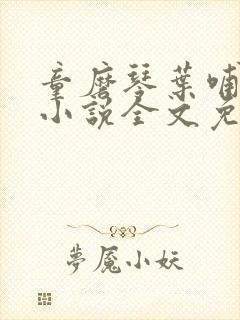 童磨琴葉哺
小說全文免
夢魘小妖